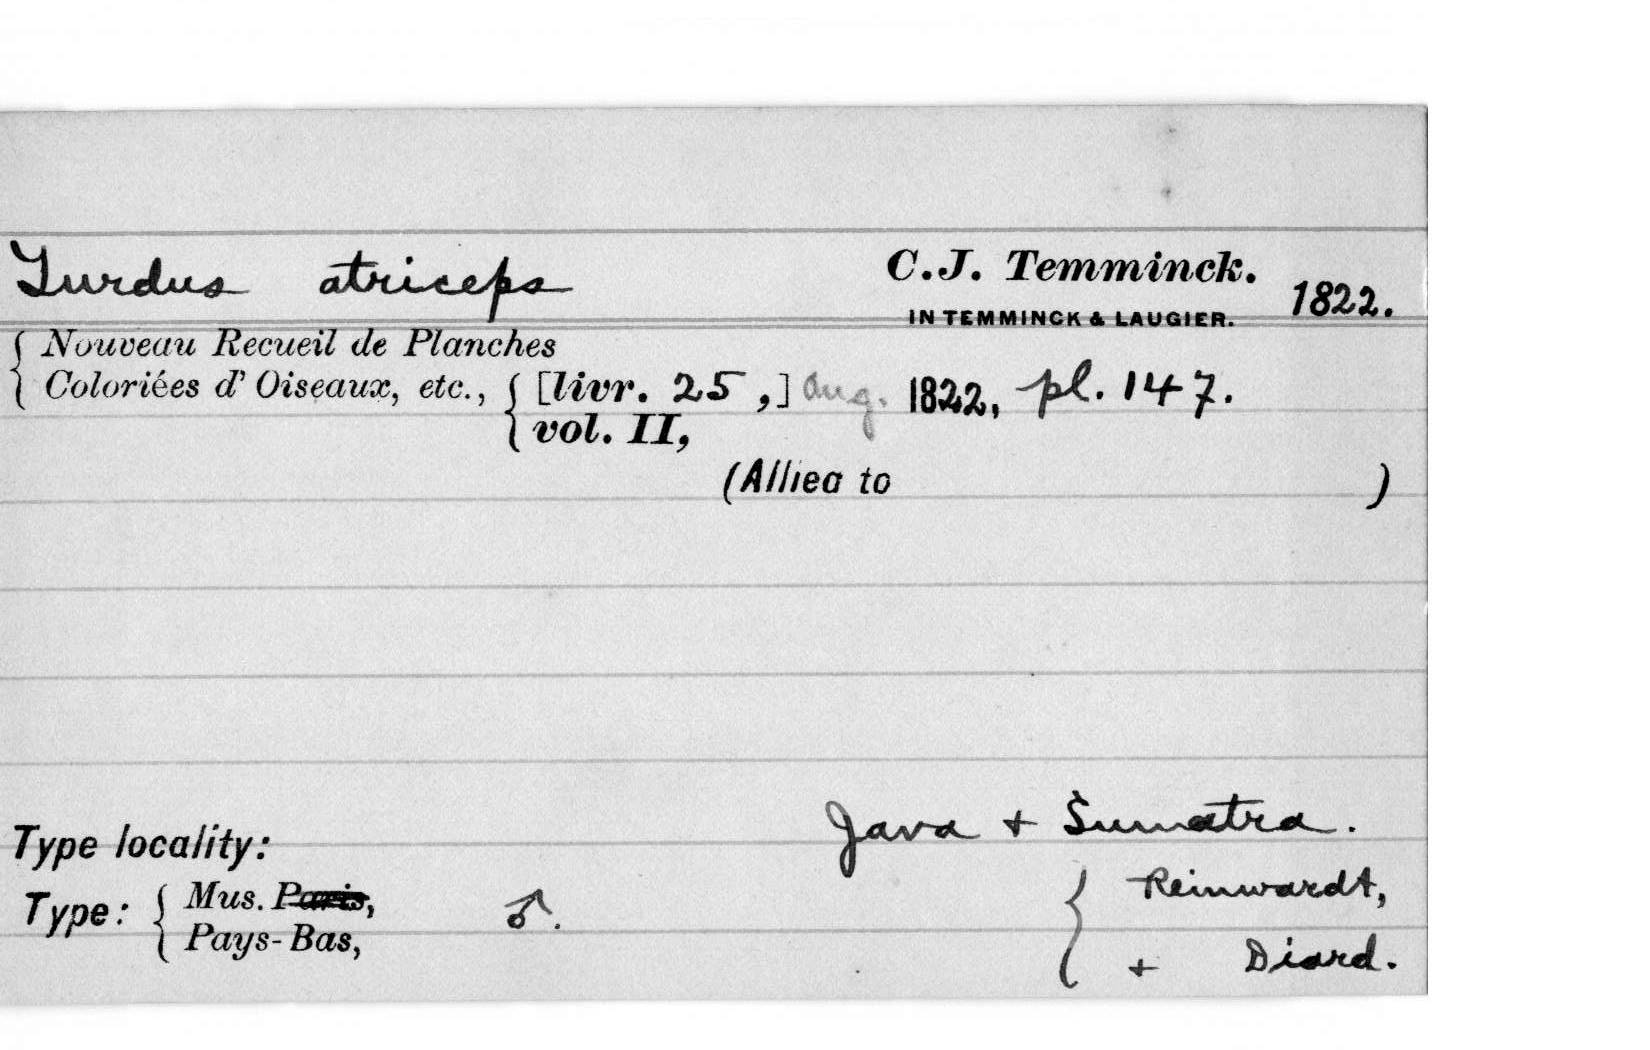 Turdus atriceps C.J. Temminck.
IN TEMMINCK & LAUGIER. 1822.
{ Nouveau Recueil de Planches
Coloriées d' Oiseaux, etc., { [livr. 25 ,] Aug. 1822, pl. 147.
vol. II,
(Allied to )
Type locality: Java + Sumatra.
Type: { Mus. Paris, ♂. { Reinwardt,
Pays-Bas, + Diard.